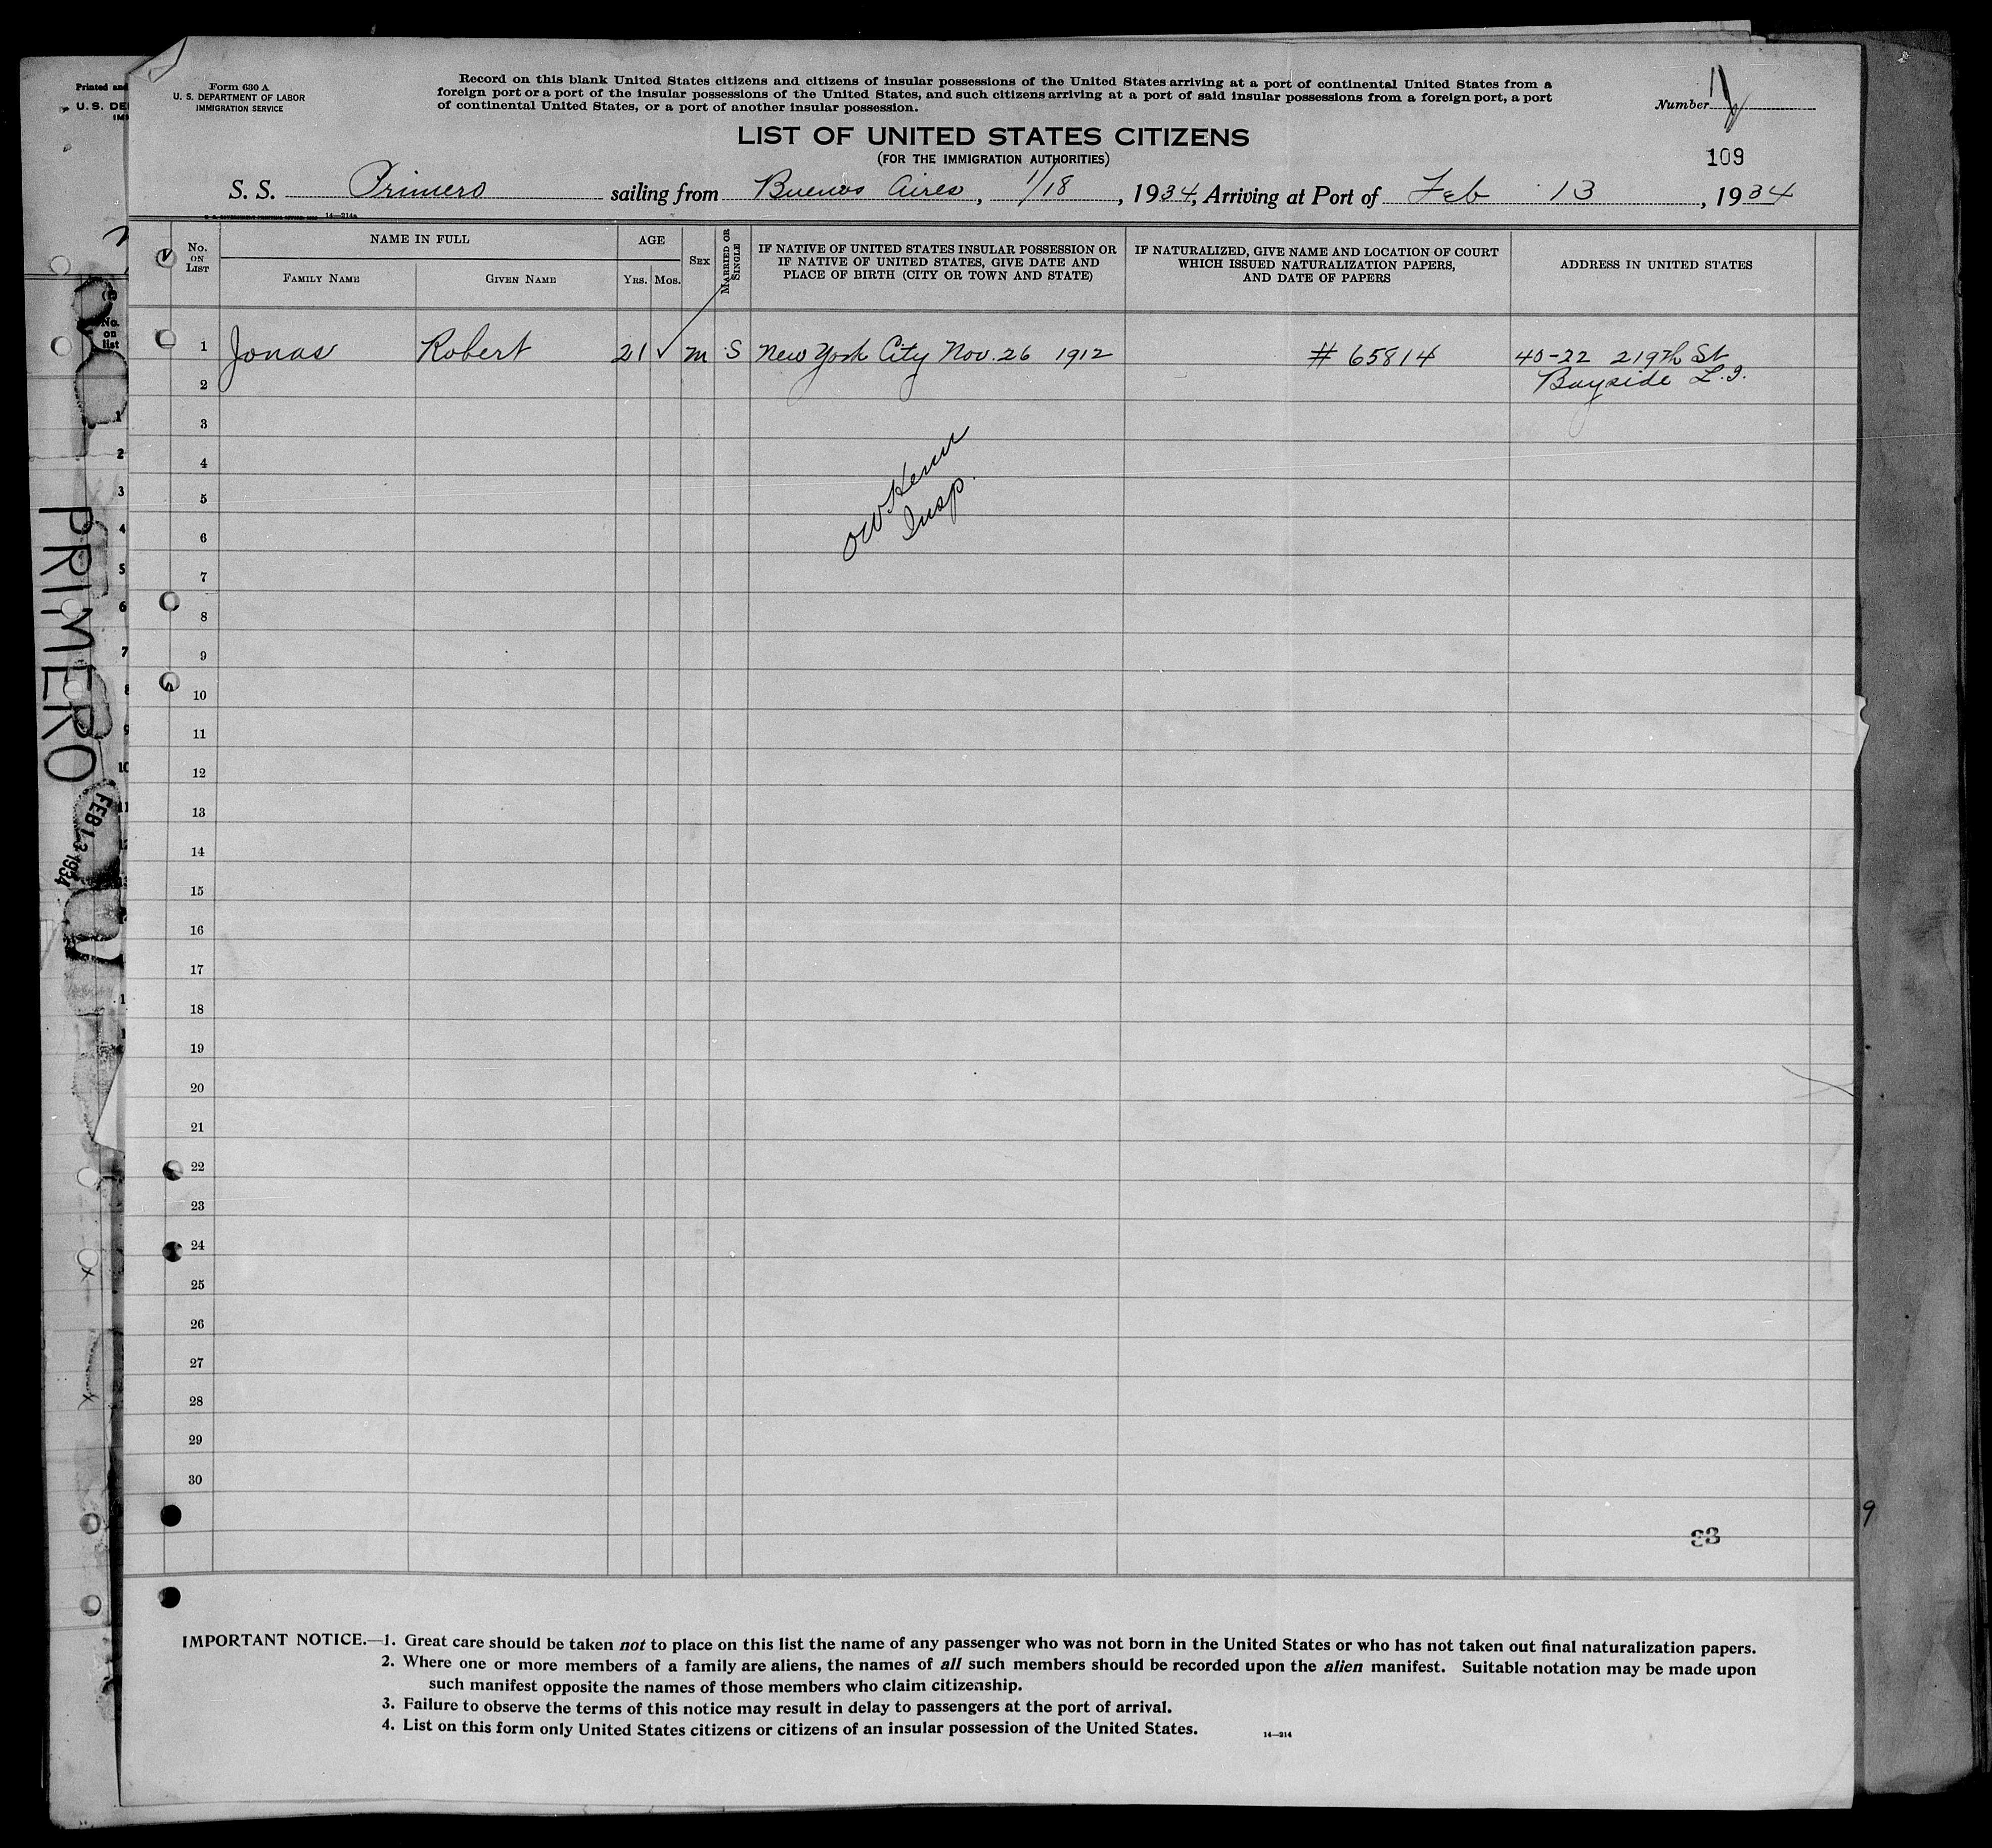 Printed and
U. S. DE
IM
Form 630 A
U. S. DEPARTMENT OF LABOR
IMMIGRATION SERVICE
Record on this blank United States citizens and citizens of insular possessions of the United States arriving at a port of continental United States from a
foreign port or a port of the insular possessions of the United States, and such citizens arriving at a port of said insular possessions from a foreign port, a port
of continental United States, or a port of another insular possession.
Number 1
109
LIST OF UNITED STATES CITIZENS
(FOR THE IMMIGRATION AUTHORITIES)
S. S. Primero sailing from Buenos Aires, 1/18, 1934, Arriving at Port of Feb 13, 1934
14—214a
No. ON LIST
NAME IN FULL
FAMILY NAME
GIVEN NAME
AGE
YRS. MOS.
SEX
MARRIED OR SINGLE
IF NATIVE OF UNITED STATES INSULAR POSSESSION OR
IF NATIVE OF UNITED STATES, GIVE DATE AND
PLACE OF BIRTH (CITY OR TOWN AND STATE)
IF NATURALIZED, GIVE NAME AND LOCATION OF COURT
WHICH ISSUED NATURALIZATION PAPERS,
AND DATE OF PAPERS
ADDRESS IN UNITED STATES
1 Jonas Robert 21 ✓ m S New York City Nov. 26 1912 # 65814 40-22 219th St
2 Bayside L.I.
3
4
5
6
Insp.
7
8
9
10
11
12
13
14
15
16
17
18
19
20
21
22
23
24
25
26
27
28
29
30
PRIMERO
FEB 13 1934
9
IMPORTANT NOTICE.—1. Great care should be taken not to place on this list the name of any passenger who was not born in the United States or who has not taken out final naturalization papers.
2. Where one or more members of a family are aliens, the names of all such members should be recorded upon the alien manifest. Suitable notation may be made upon
such manifest opposite the names of those members who claim citizenship.
3. Failure to observe the terms of this notice may result in delay to passengers at the port of arrival.
4. List on this form only United States citizens or citizens of an insular possession of the United States.
14—214